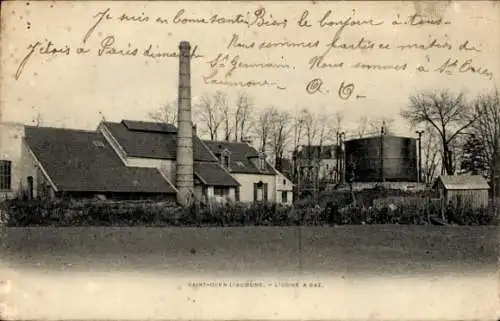 Je suis en Constante Bien le bonjour à tous
J'étais à Paris dimanche. Nous sommes partis ce matin de
St Germain. Nous sommes à St
Laumône
SAINT-OUEN L'AUMÔNE. — L'USINE A GAZ.